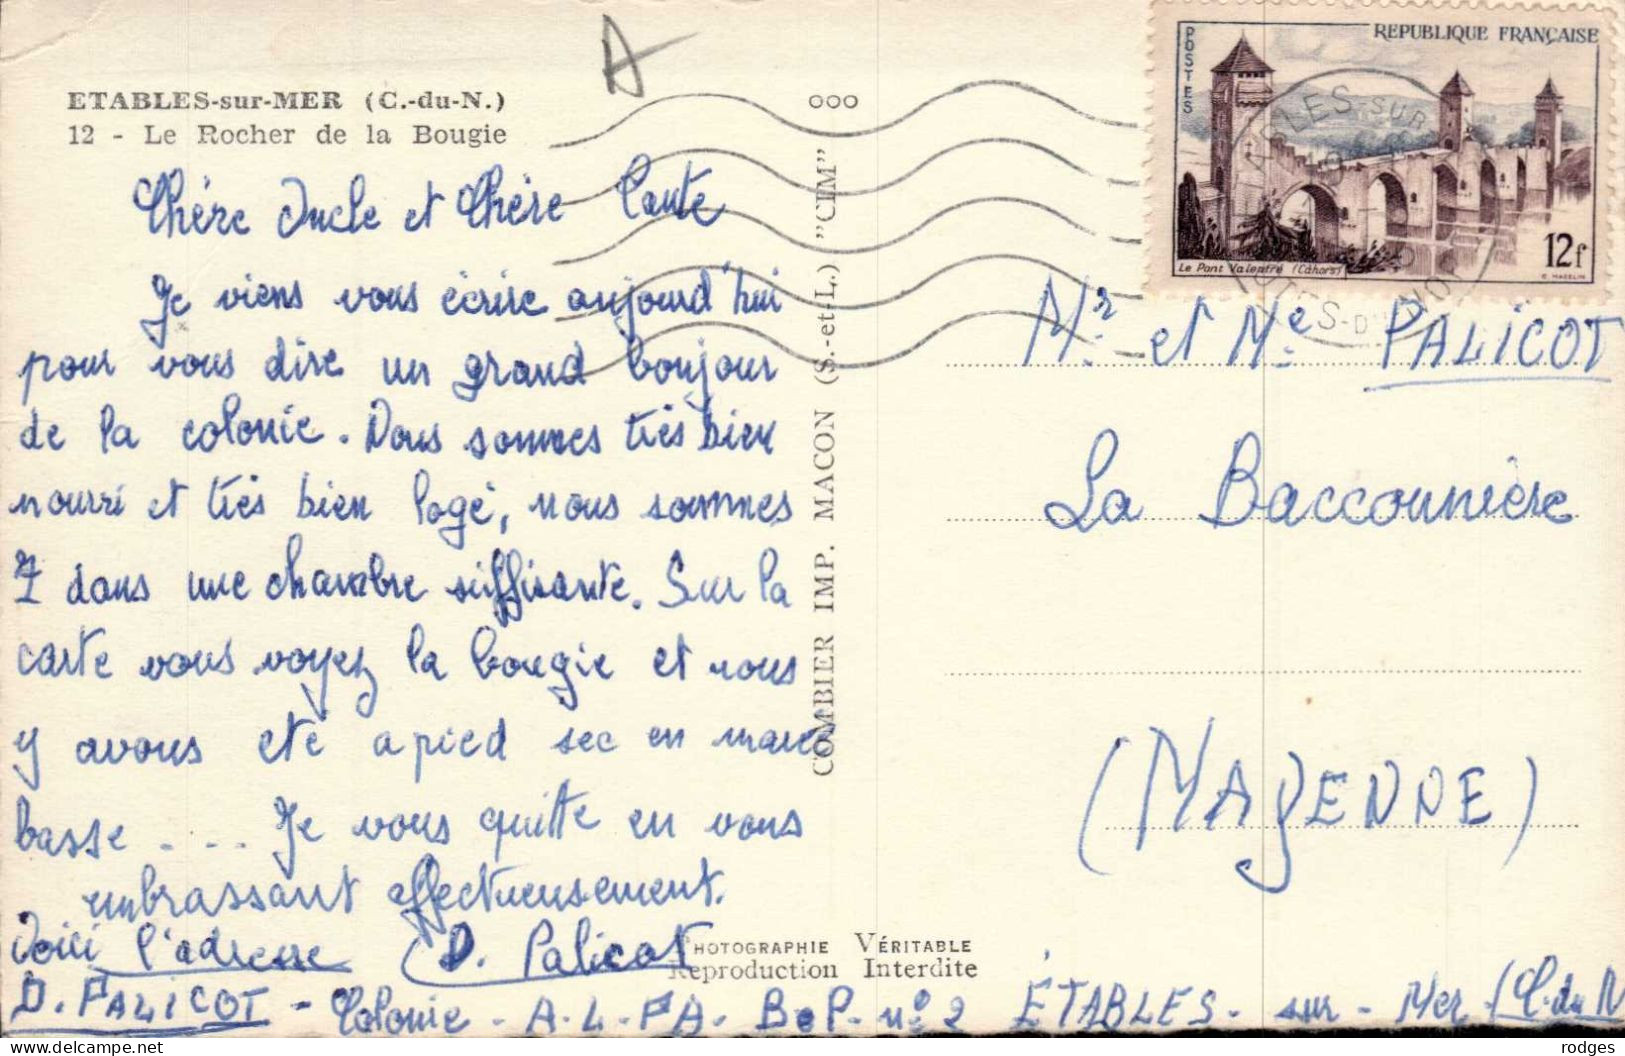 ETABLES-sur-MER (C.-du-N.)
12 - Le Rocher de la Bougie
A
ooo
Chère Oncle et Chère Tante
Je viens vous écrire aujourd'hui
pour vous dire un grand bonjour
de la colonie. Nous sommes très bien
nourri et très bien logé, nous sommes
7 dans une chambre suffisante. Sur la
carte vous voyez la bougie et nous
y avons eté a pied sec en maré
basse . . . Je vous quitte en vous
embrassant affectueusement.
Voici l'adresse D. Palicot
D. PALICOT - Colonie - A.L.PA. B.P. n° 2 ÉTABLES - sur - Mer (C. du N
COMBIER IMP. MACON (S.-et-L.) "CIM"
PHOTOGRAPHIE VÉRITABLE
Reproduction Interdite
POSTES
REPUBLIQUE FRANÇAISE
Le Pont Valentré (Cahors)
12f
ABLES-SUR
COTES-DU-NORD
Mr. et Me. PALICOT
La Baconnière
(MAYENNE)
delcampe.net
rodges